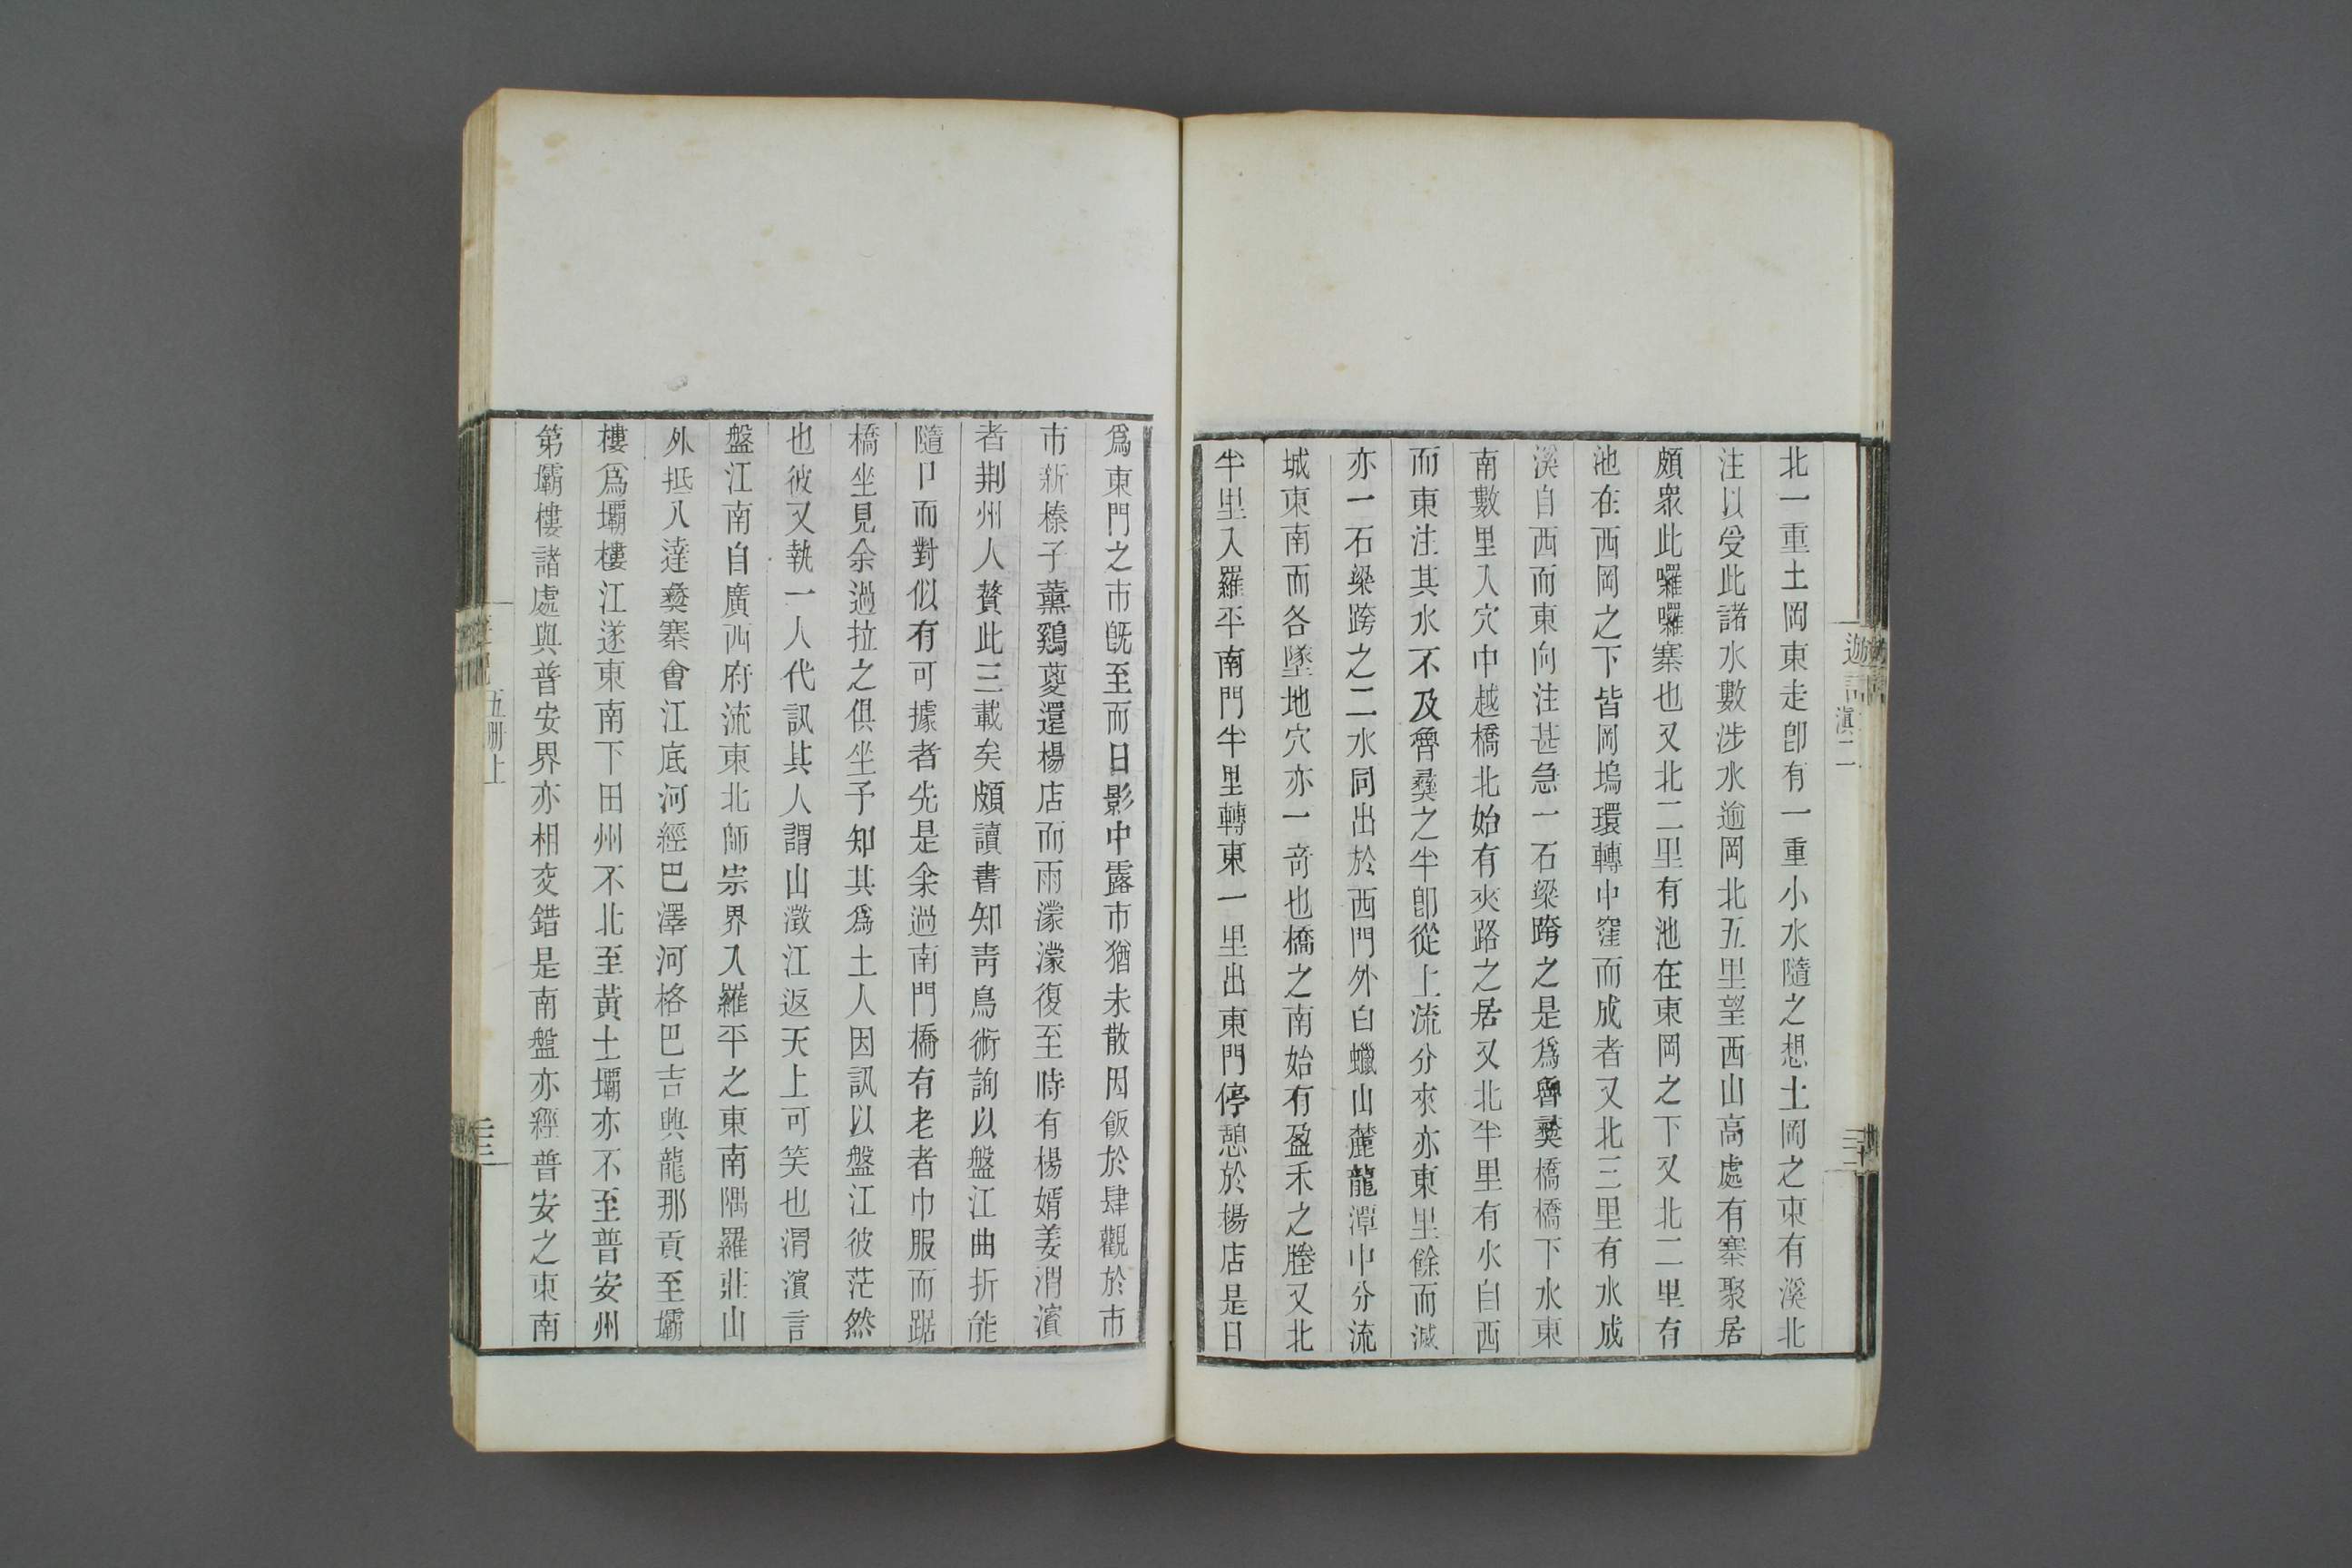 北一重土岡東走卽有一重小水隨之想土岡之東有溪北
注以受此諸水數涉水逾岡北五里望西山高處有寨聚居
頗衆此囉囉寨也又北二里有池在東岡之下又北二里有
池在西岡之下皆岡塢環轉中窪而成者又北三里有水成
溪自西而東向注甚急一石梁跨之是爲魯彝橋橋下水東
南數里入穴中越橋北始有夾路之居又北半里有水自西
而東注其水不及魯彝之半卽從上流分來亦東里餘而滅
亦一石梁跨之二水同出於西門外白蠟山麓龍潭中分流
城東南而各墜地穴亦一奇也橋之南始有盈禾之塍又北
半里入羅平南門半里轉東一里出東門停憩於楊店是日
爲東門之市旣至而日影中露市猶未散因飯於肆觀於市
市新榛子薰鷄葼還楊店而雨濛濛復至時有楊婿姜渭濱
者荆州人贅此三載矣頗讀書知靑鳥術詢以盤江曲折能
隨口而對似有可據者先是余過南門橋有老者巾服而踞
橋坐見余過拉之俱坐予知其爲土人因訊以盤江彼茫然
也彼又執一人代訊其人謂由澂江返天上可笑也渭濱言
盤江南自廣西府流東北師宗界入羅平之東南隅羅莊山
外抵八達彝寨會江底河經巴澤河格巴吉興龍那貢至壩
樓爲壩樓江遂東南下田州不北至黃土壩亦不至普安州
第壩樓諸處與普安界亦相交錯是南盤亦經普安之東南
遊記
滇二
三十二
五册上